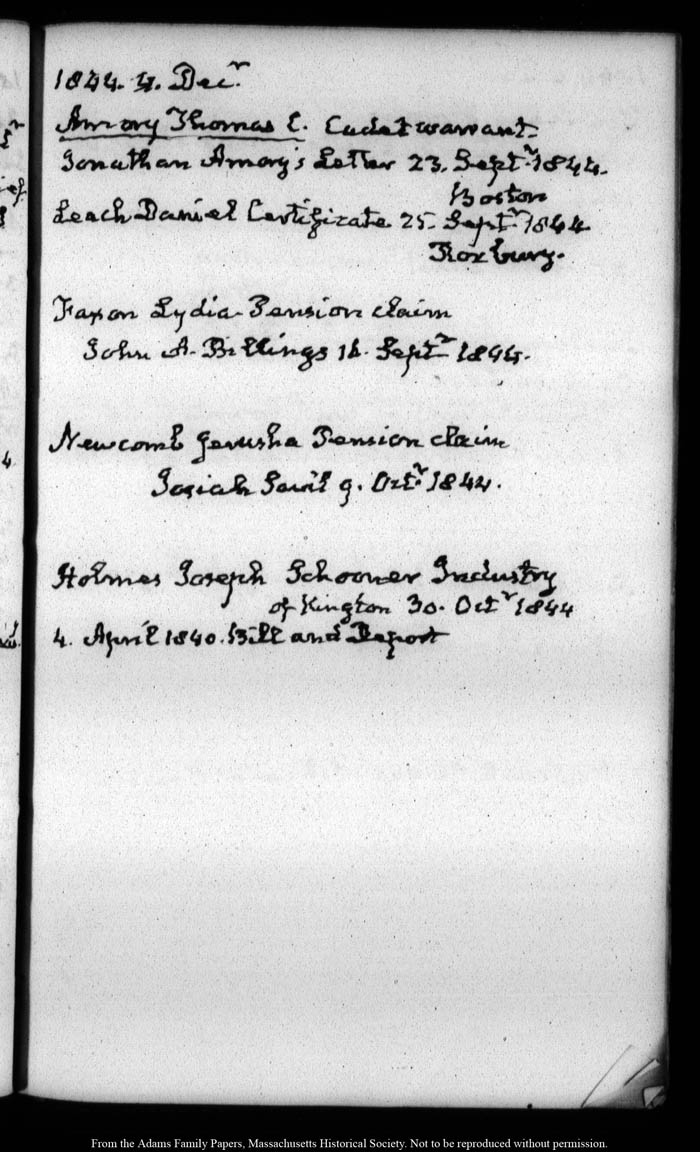 1844. 4. Decr.
Amory Thomas C. Cadet warrant
Jonathan Amory's Letter 23. Septr. 1844.
Boston
Leach Daniel Certificate 25. Septr. 1844
Roxbury.
Faxon Lydia Pension claim
John A. Billings Septr. 1844.
Newcomb Jerusha Pension claim
Josiah Savil 9. Octr. 1844.
Holmes Joseph Schooner Industry
of Kington 30. Octr 1844
4. April 1840. Bill and Report
From the Adams Family Papers, Massachusetts Historical Society. Not to be reproduced without permission.